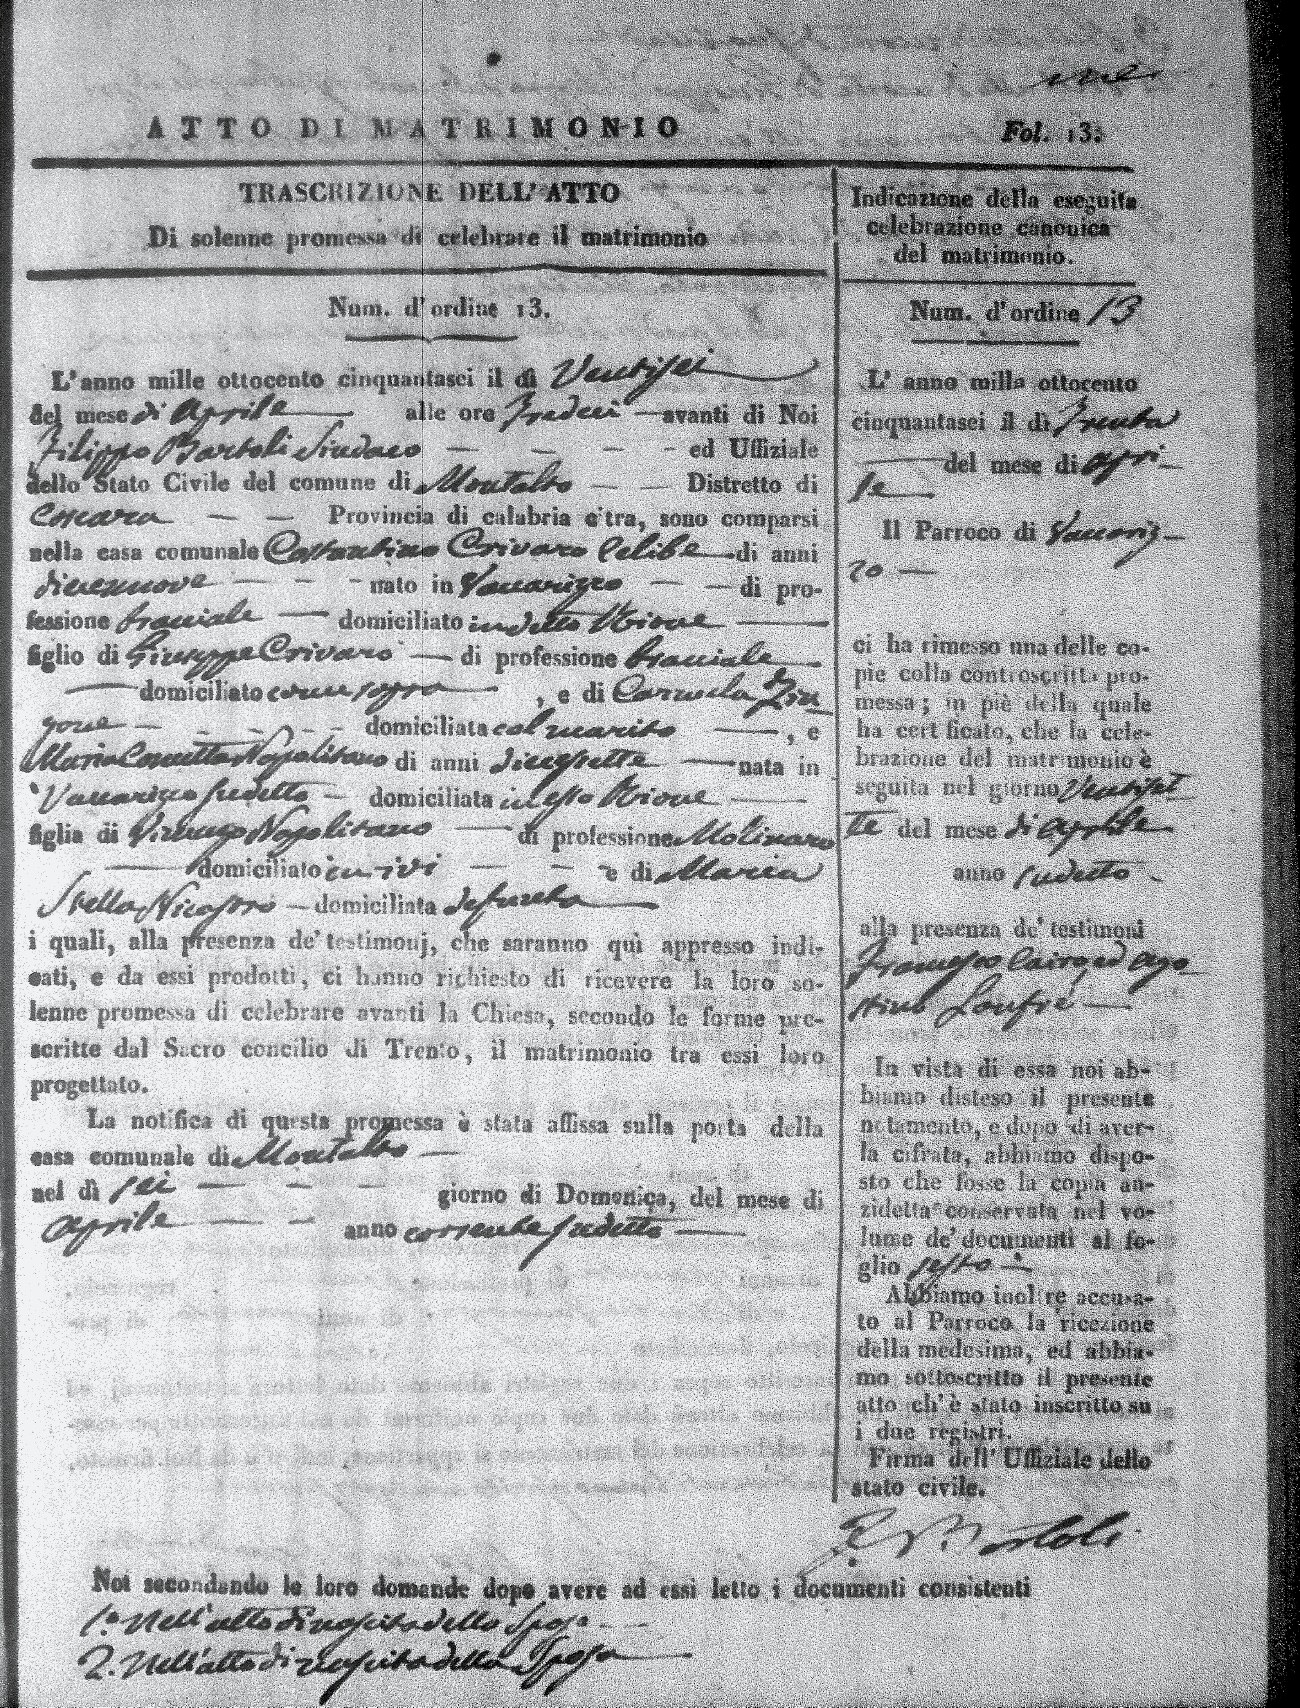 ATTO DI MATRIMONIO
Fol. 13.
TRASCRIZIONE DELL'ATTO
Di solenne promessa di celebrare il matrimonio
Num. d'ordine 13.
L'anno mille ottocento cinquantasei il dì Ventisei
del mese di Aprile alle ore Tredeci avanti di Noi
Filippo Bartoli Sindaco ed Uffiziale
dello Stato Civile del comune di Montalto Distretto di
Cosenza Provincia di calabria citra, sono comparsi
nella casa comunale Costantino Crivaro Celibe di anni
diecennove nato in Vaccarizzo di pro-
fessione bracciale domiciliato in detto Rione
figlio di Giuseppe Crivaro di professione bracciale
domiciliato come sopra , e di Carmela Zin
gone domiciliata col marito , e
Maria Concetta Napolitano di anni diecisette nata in
Vaccarizzo sudetto domiciliata in esso Rione
figlia di Napolitano di professione Molinaro
domiciliato in ivi e di Maria
Stella Nicastro domiciliata defunta
i quali, alla presenza de' testimonj, che saranno quì appresso indi-
cati, e da essi prodotti, ci hanno richiesto di ricevere la loro so-
lenne promessa di celebrare avanti la Chiesa, secondo le forme pre-
scritte dal Sacro concilio di Trento, il matrimonio tra essi loro
progettato.
La notifica di questa promessa è stata affissa sulla porta della
casa comunale di Montalto
nel dì sei giorno di Domenica, del mese di
Aprile anno corrente sudetto
Indicazione della eseguita
celebrazione canonica
del matrimonio.
Num. d'ordine 13
L' anno mille ottocento
cinquantasei il dì Trenta
del mese di apri-
le
Il Parroco di Vaccariz-
zo
ci ha rimesso una delle co-
pie colla controscritta pro-
messa; in piè della quale
ha certificato, che la cele-
brazione del matrimonio è
seguita nel giorno Ventiset
te del mese di aprile
anno sudetto
alla presenza de' testimoni
Francesco Cairo ed Ago
stino Loufré
In vista di essa noi ab-
biamo disteso il presente
notamento, e dopo di aver-
la cifrata, abbiamo dispo-
sto che fosse la copia an-
zidetta conservata nel vo-
lume de' documenti al fo-
glio sesto
Abbiamo inoltre accusa-
to al Parroco la ricezione
della medesima, ed abbia-
mo sottoscritto il presente
atto ch'è stato inscritto su
i due registri.
Firma dell' Uffiziale dello
stato civile.
F. Bartoli
Noi secondando le loro domande dopo avere ad essi letto i documenti consistenti
1.° Nell'atto di nascita dello Sposo
2. Nell'atto di nascita della Sposa